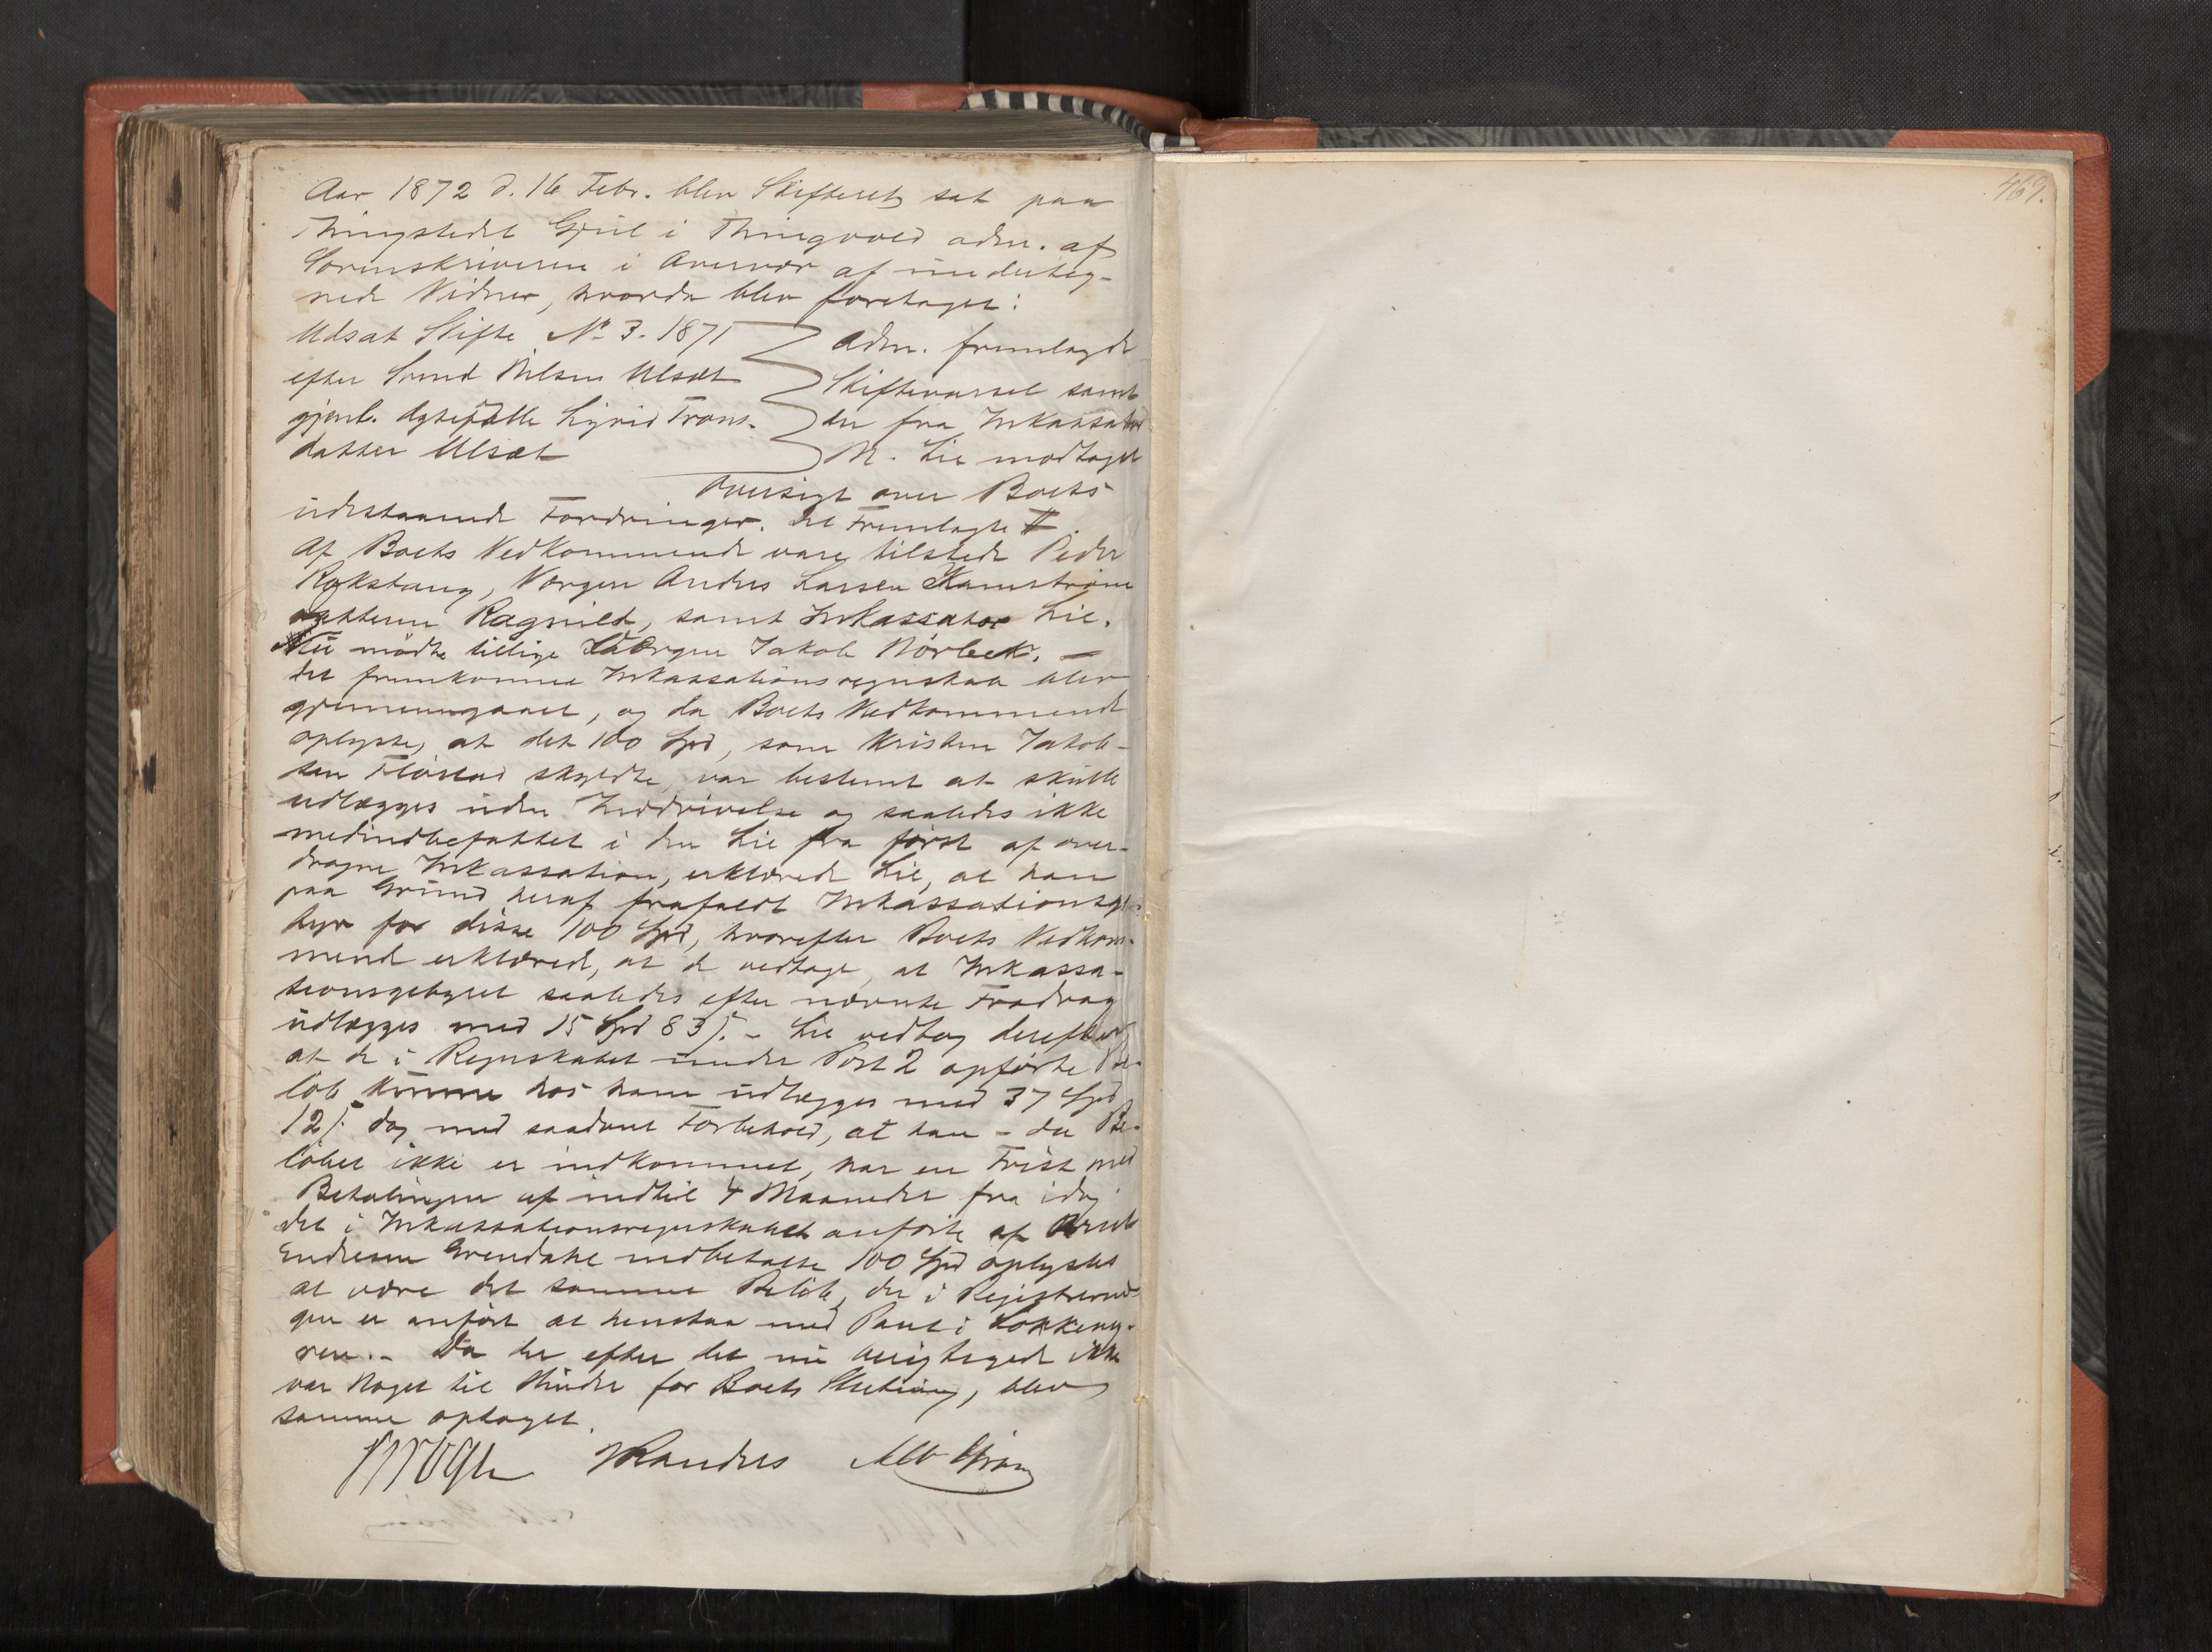 Aar 1872 d. 16 Febr. blev Skifteret sat paa
Thingstedet i Thingvold adm. af
Sorenskriveren i af underteg-
nede Vidner, hvorda blev foretaget:
Udsat Skifte No 3 - 1871
efter Nilsen Ulsæt
gjenl. Ægtefælle Sigrid Trons-
datter Ulsæt
Adm. fremlagde
Skiftevarsel samt
den fra Inkassator
M. Lie modtagne
Oversigt over Boets
udestaaende Fordringer. Det Fremlagte #
Af Boets Vedkommende vare tilstede Peder
Rokstang, Værgen Andres Larsen
Ragnild, samt Inkassator Lie.
Nu mødte tillige Værgen Jakob Nørbek. —
Det fremkomne Inkassationsregnskab blev
gjennemgaaet, og da Boets Vedkommende
oplyste, at det 100 Spd, som Kristen Jakob-
sen skyldte, var bestemt at skulle
udlægges uden Inddrivelse og saaledes ikke
medindbefattet i den Lie fra først af over-
dragne Inkassation, erklærede Lie, at han
paa Grund heraf frafaldt Inkassationsge-
byr for disse 100 Spd, hvorefter Boets Vedkom-
mende erklærede, at de vedtage, at Inkassa-
tionsgebyret saaledes efter nævnte Fradrag
udlægges med 15 Spd 83 ß. - Lie vedtog derefter
at de i Regnskabet under Post 2 opførte Be-
løb kunne hos ham udlægges med 37 Spd
12 ß dog med saadant Forbehold, at han - da Be-
løbet ikke er indkommet, har en Frist med
Betalingen af indtil 4 Maaneder fra idag
Det i Inkassationsregnskabet anførte af
Endresen Grendahl indbetalte 100 Spd oplystes
at være det samme Beløb, der i Registrerin-
gen er anført at henstaa med Pant i Løkkeny-
ren. - Da der efter det nu berigtigede ikke
var Noget til Hinder for Boets Slutning, blev
samme optaget.
469.